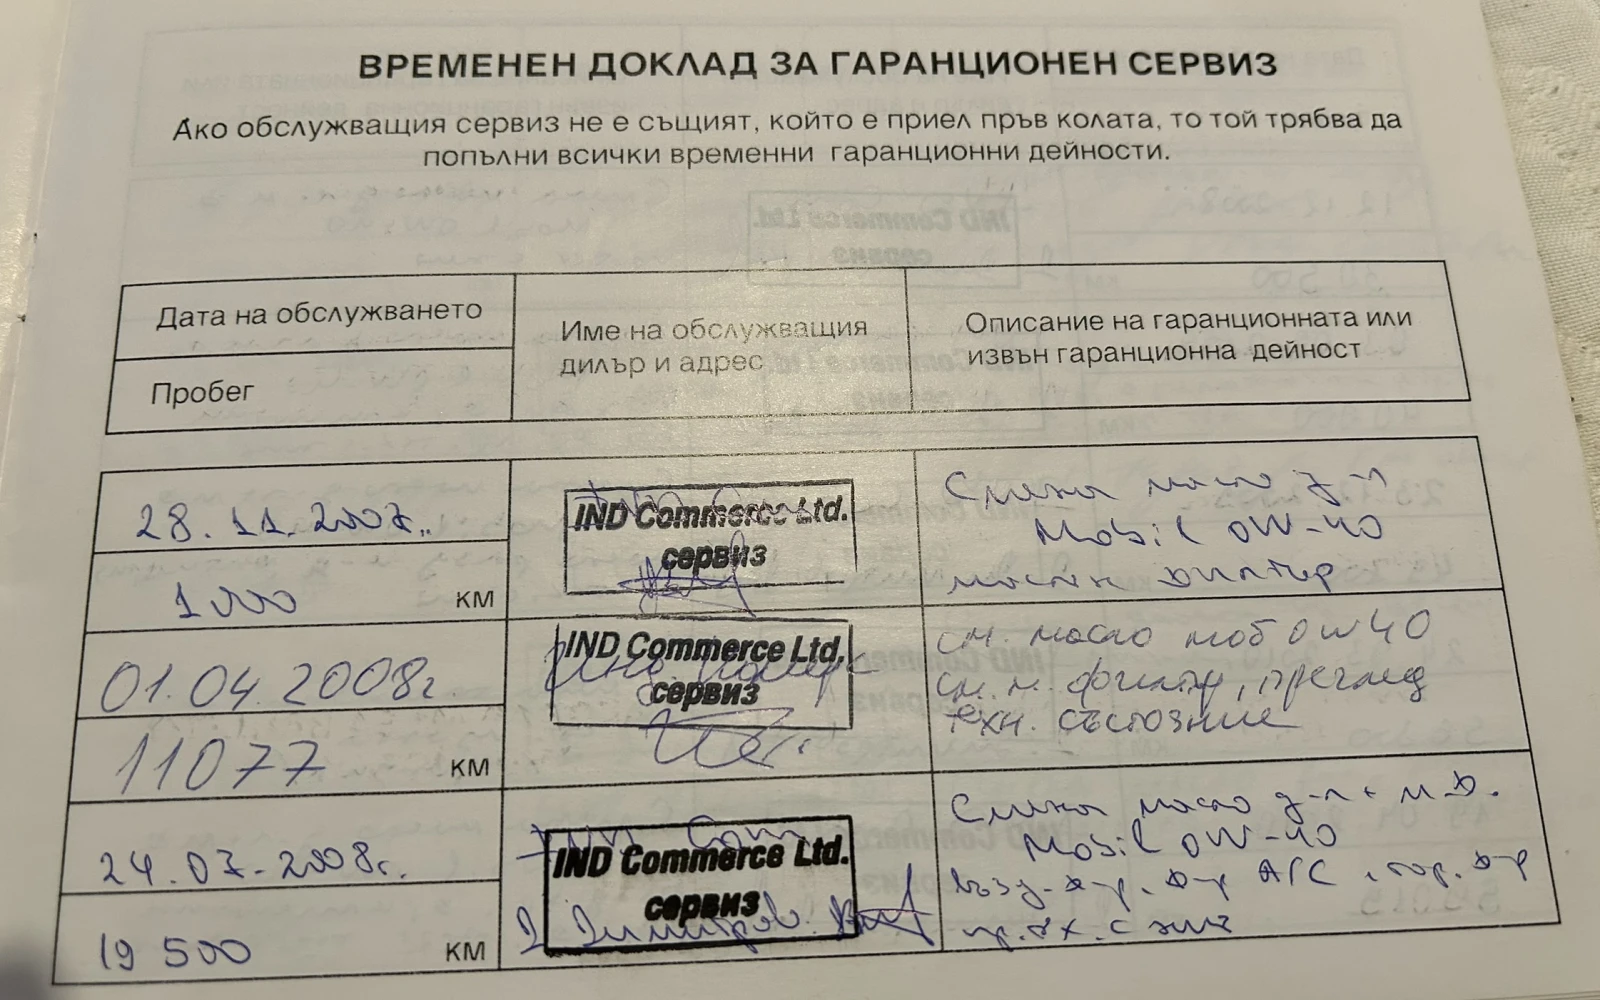 ВРЕМЕНЕН ДОКЛАД ЗА ГАРАНЦИОНЕН СЕРВИЗ
Ако обслужващия сервиз не е същият, който е приел пръв колата, то той трябва да
попълни всички временни гаранционни дейности.
Дата на обслужването
Пробег
Име на обслужващия
дилър и адрес
Описание на гаранционната или
извън гаранционна дейност
28.11.2007г.
1000 км
IND Commerce Ltd.
сервиз
Смяна масло д-л
Mobil 0W-40
маслен филтър
01.04.2008г
11077 км
IND Commerce Ltd.
сервиз
см. масло моб 0W40
см. м. филтър, преглед
техн. състояние
24.07.2008г.
19 500 км
IND Commerce Ltd.
сервиз
Димитров
Смяна масло д-л + м.ф.
Mobil 0W-40
възд. ф-р, ф-р A/C, гор. ф-р